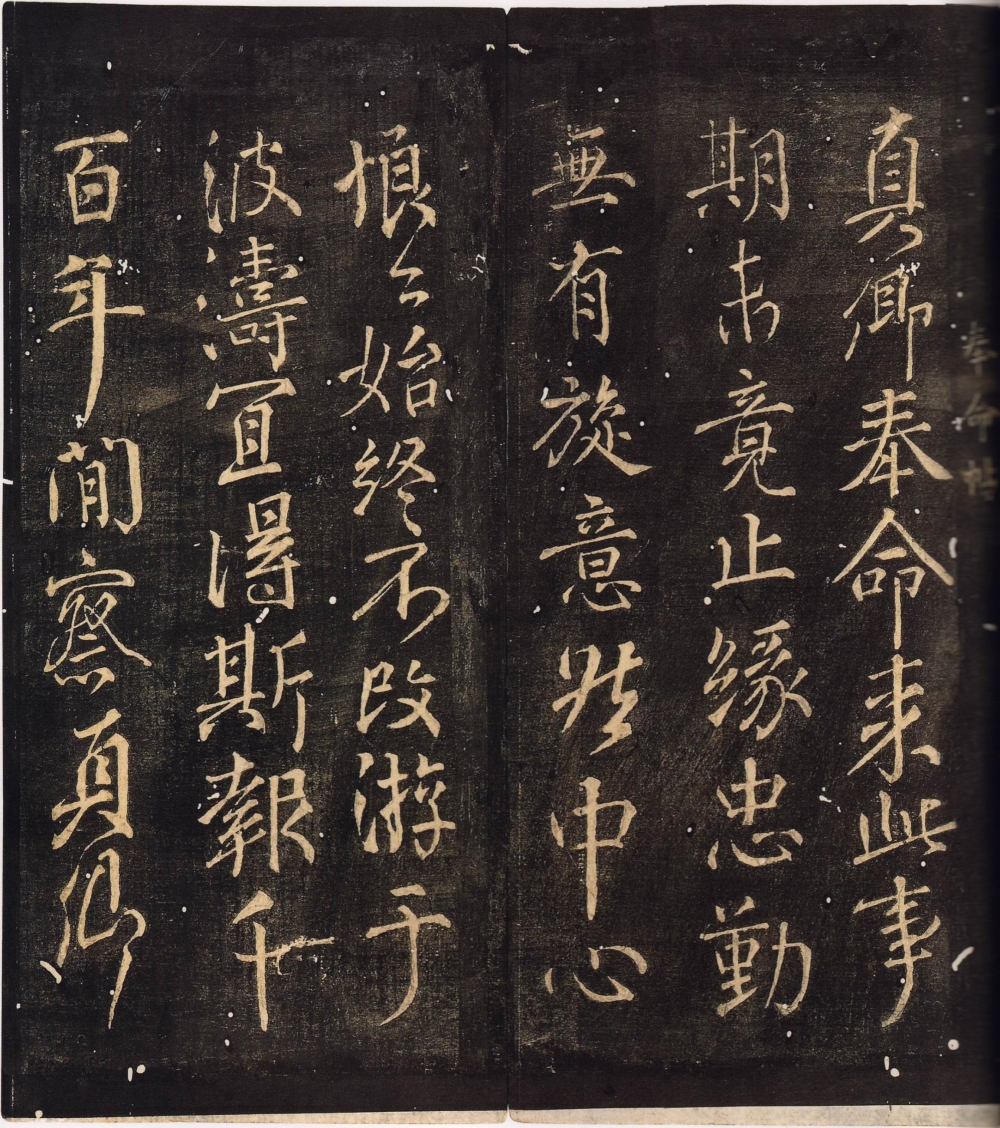 奉命帖
真卿奉命来此事
期未竟止緣忠勤
無有旋意然中心
恨恨始終不改游于
波濤宜得斯報千
百年間察真卿